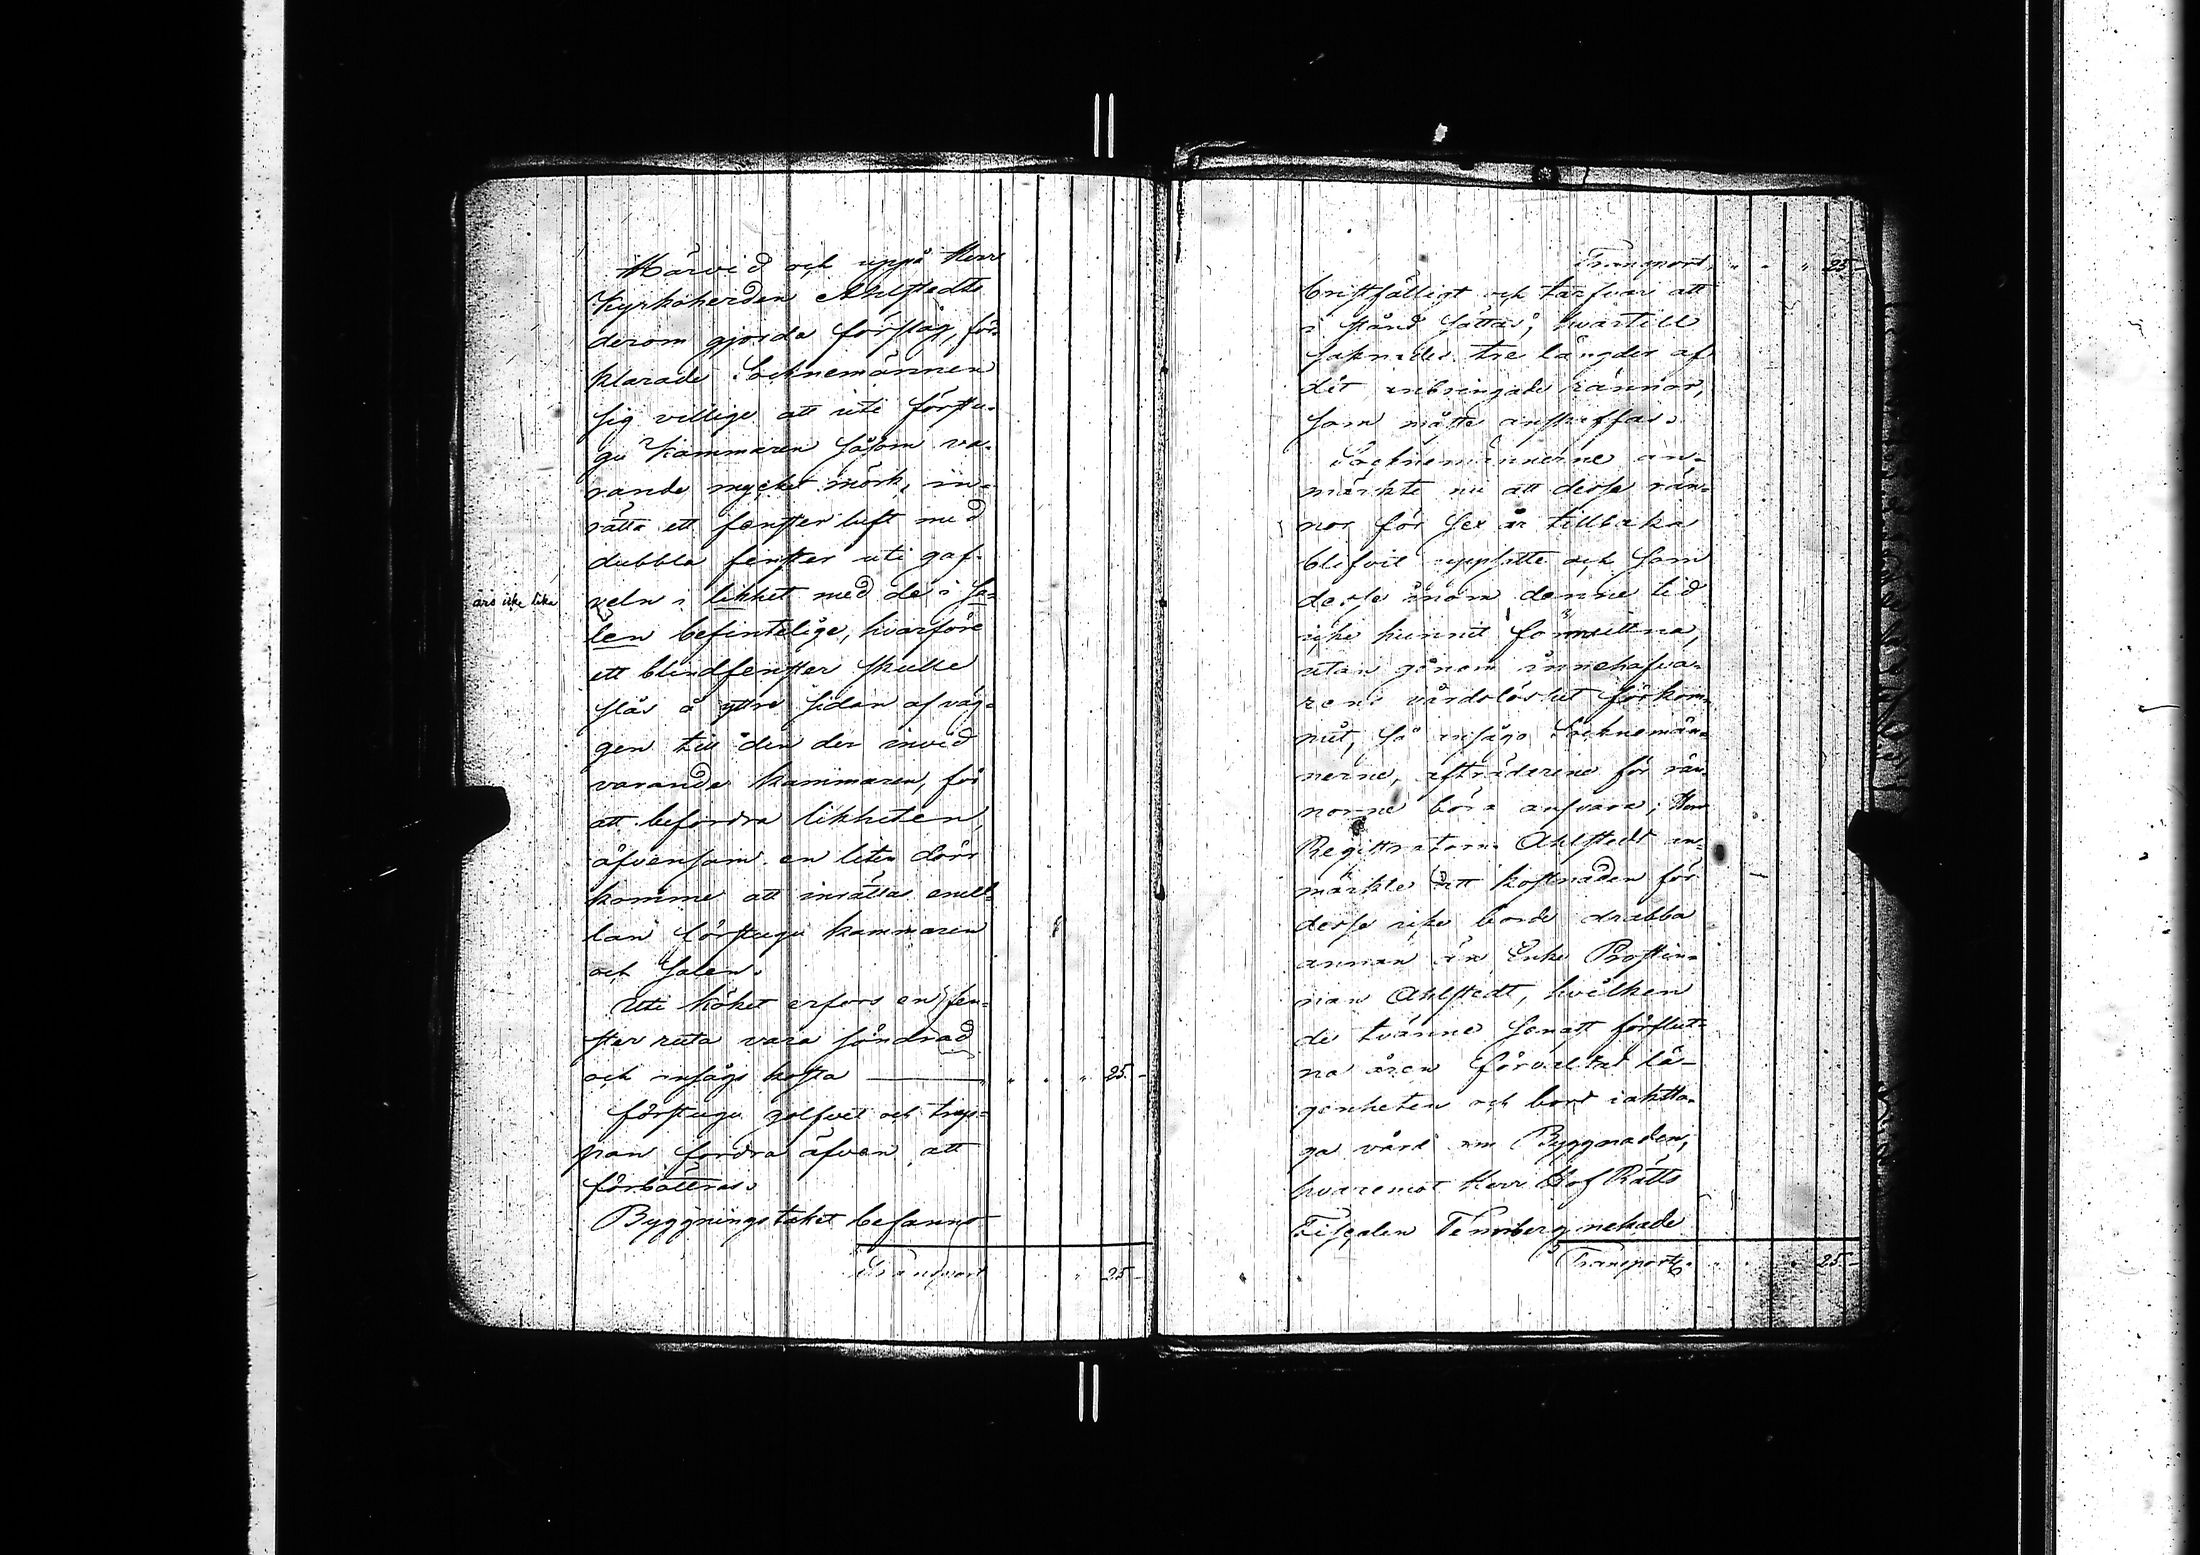 Härvid och uppå Herr
Kyrkoherden Ahlstedts
derom gjorda förslag, för-
klarade Socknemännen
sig villige att uti förstu-
gu Kammaren såsom va-
rande mycket mörk, in-
rätta ett fenster luft med
dubbla fenster uti gaf-
veln i likhet med de i Sa-
äro icke lika
len befintelige, hvarföre
ett blindfenster skulle
slås å yttre sidan af väg-
gen till den der invid
varande kammaren, för
att befordra likheten,
äfvensom en liten dörr
komme att inrättas emel-
lan förstugu kammaren
och Salen.
Uti köket erfors en fen-
ster ruta vara söndrad
och ansågs kosta — " " " 25 -
Förstugu golfvet och trap-
pan fordra äfven att
förbättras.
Byggningstaket befanns
Transport " 25 -
Transport " " " 25 -
bristfälligt och tarfvar att
i stånd sättas; hvartill
saknades tre längder af
dit anbringade rännor,
som måtte anskaffas.
Socknemännerne an-
märkte nu att desse rän-
nor för sex år tillbaka
blifvit uppsatte och som
desse inom denne tid
icke kunnat
utan genom innehafva-
rens vårdslöshet förkom-
mit, så ansågo Socknemän-
nerne, afträderene för rän-
norne böra ansvara; Herr
Registratorn Ahlstedt an-
märkte att kostnaden för
desse icke borde drabba
annan än Enke Prostin-
nan Ahlstedt, hvilken
de tvänne senast förflut-
na åren förvaltat lä-
genheten och bort iaktta-
ga vård om Byggnaden;
hvaremot Herr Hof Rätts
Fiscalen Tennberg nekade
Transport " " " 25 -